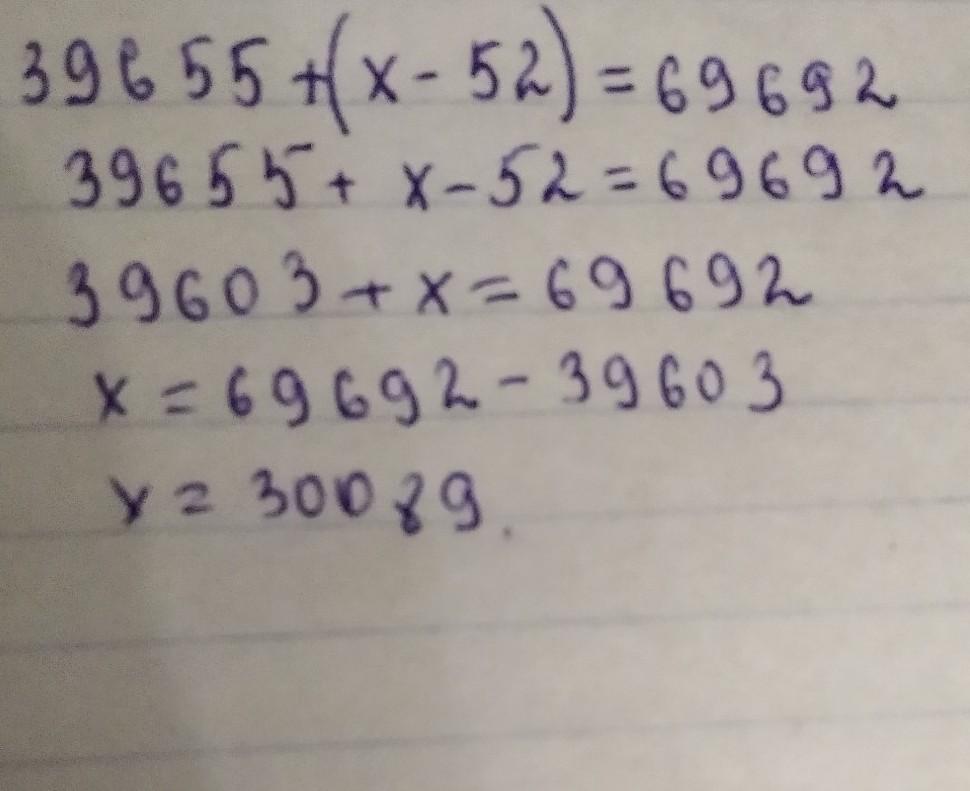 39655+(x-52)=69692
39655+x-52=69692
39603+x=69692
x=69692-39603
x=30089.